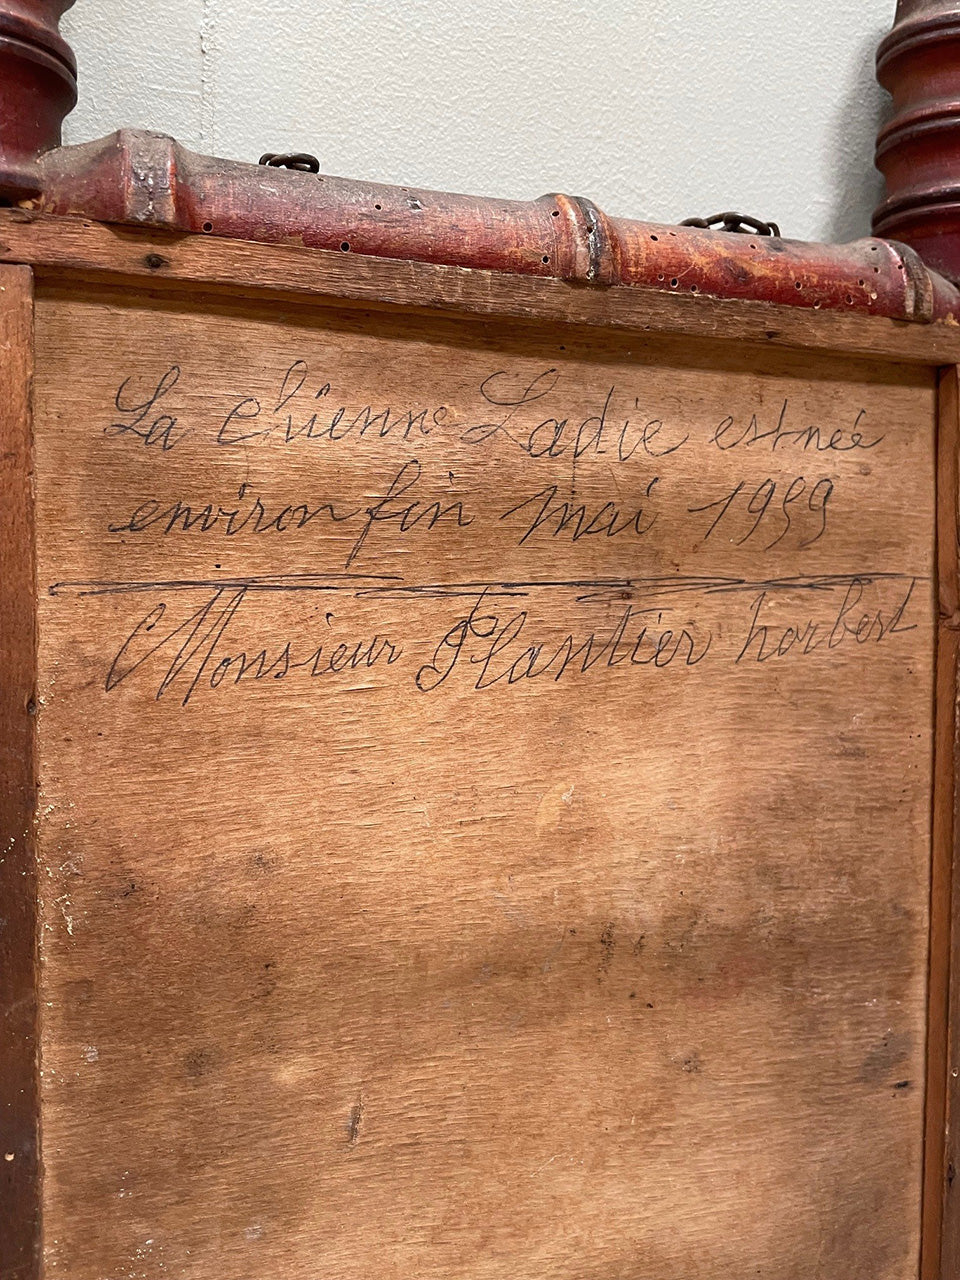 La chienne Ladie est née
environ fin mai 1959
Monsieur Plantier horbert